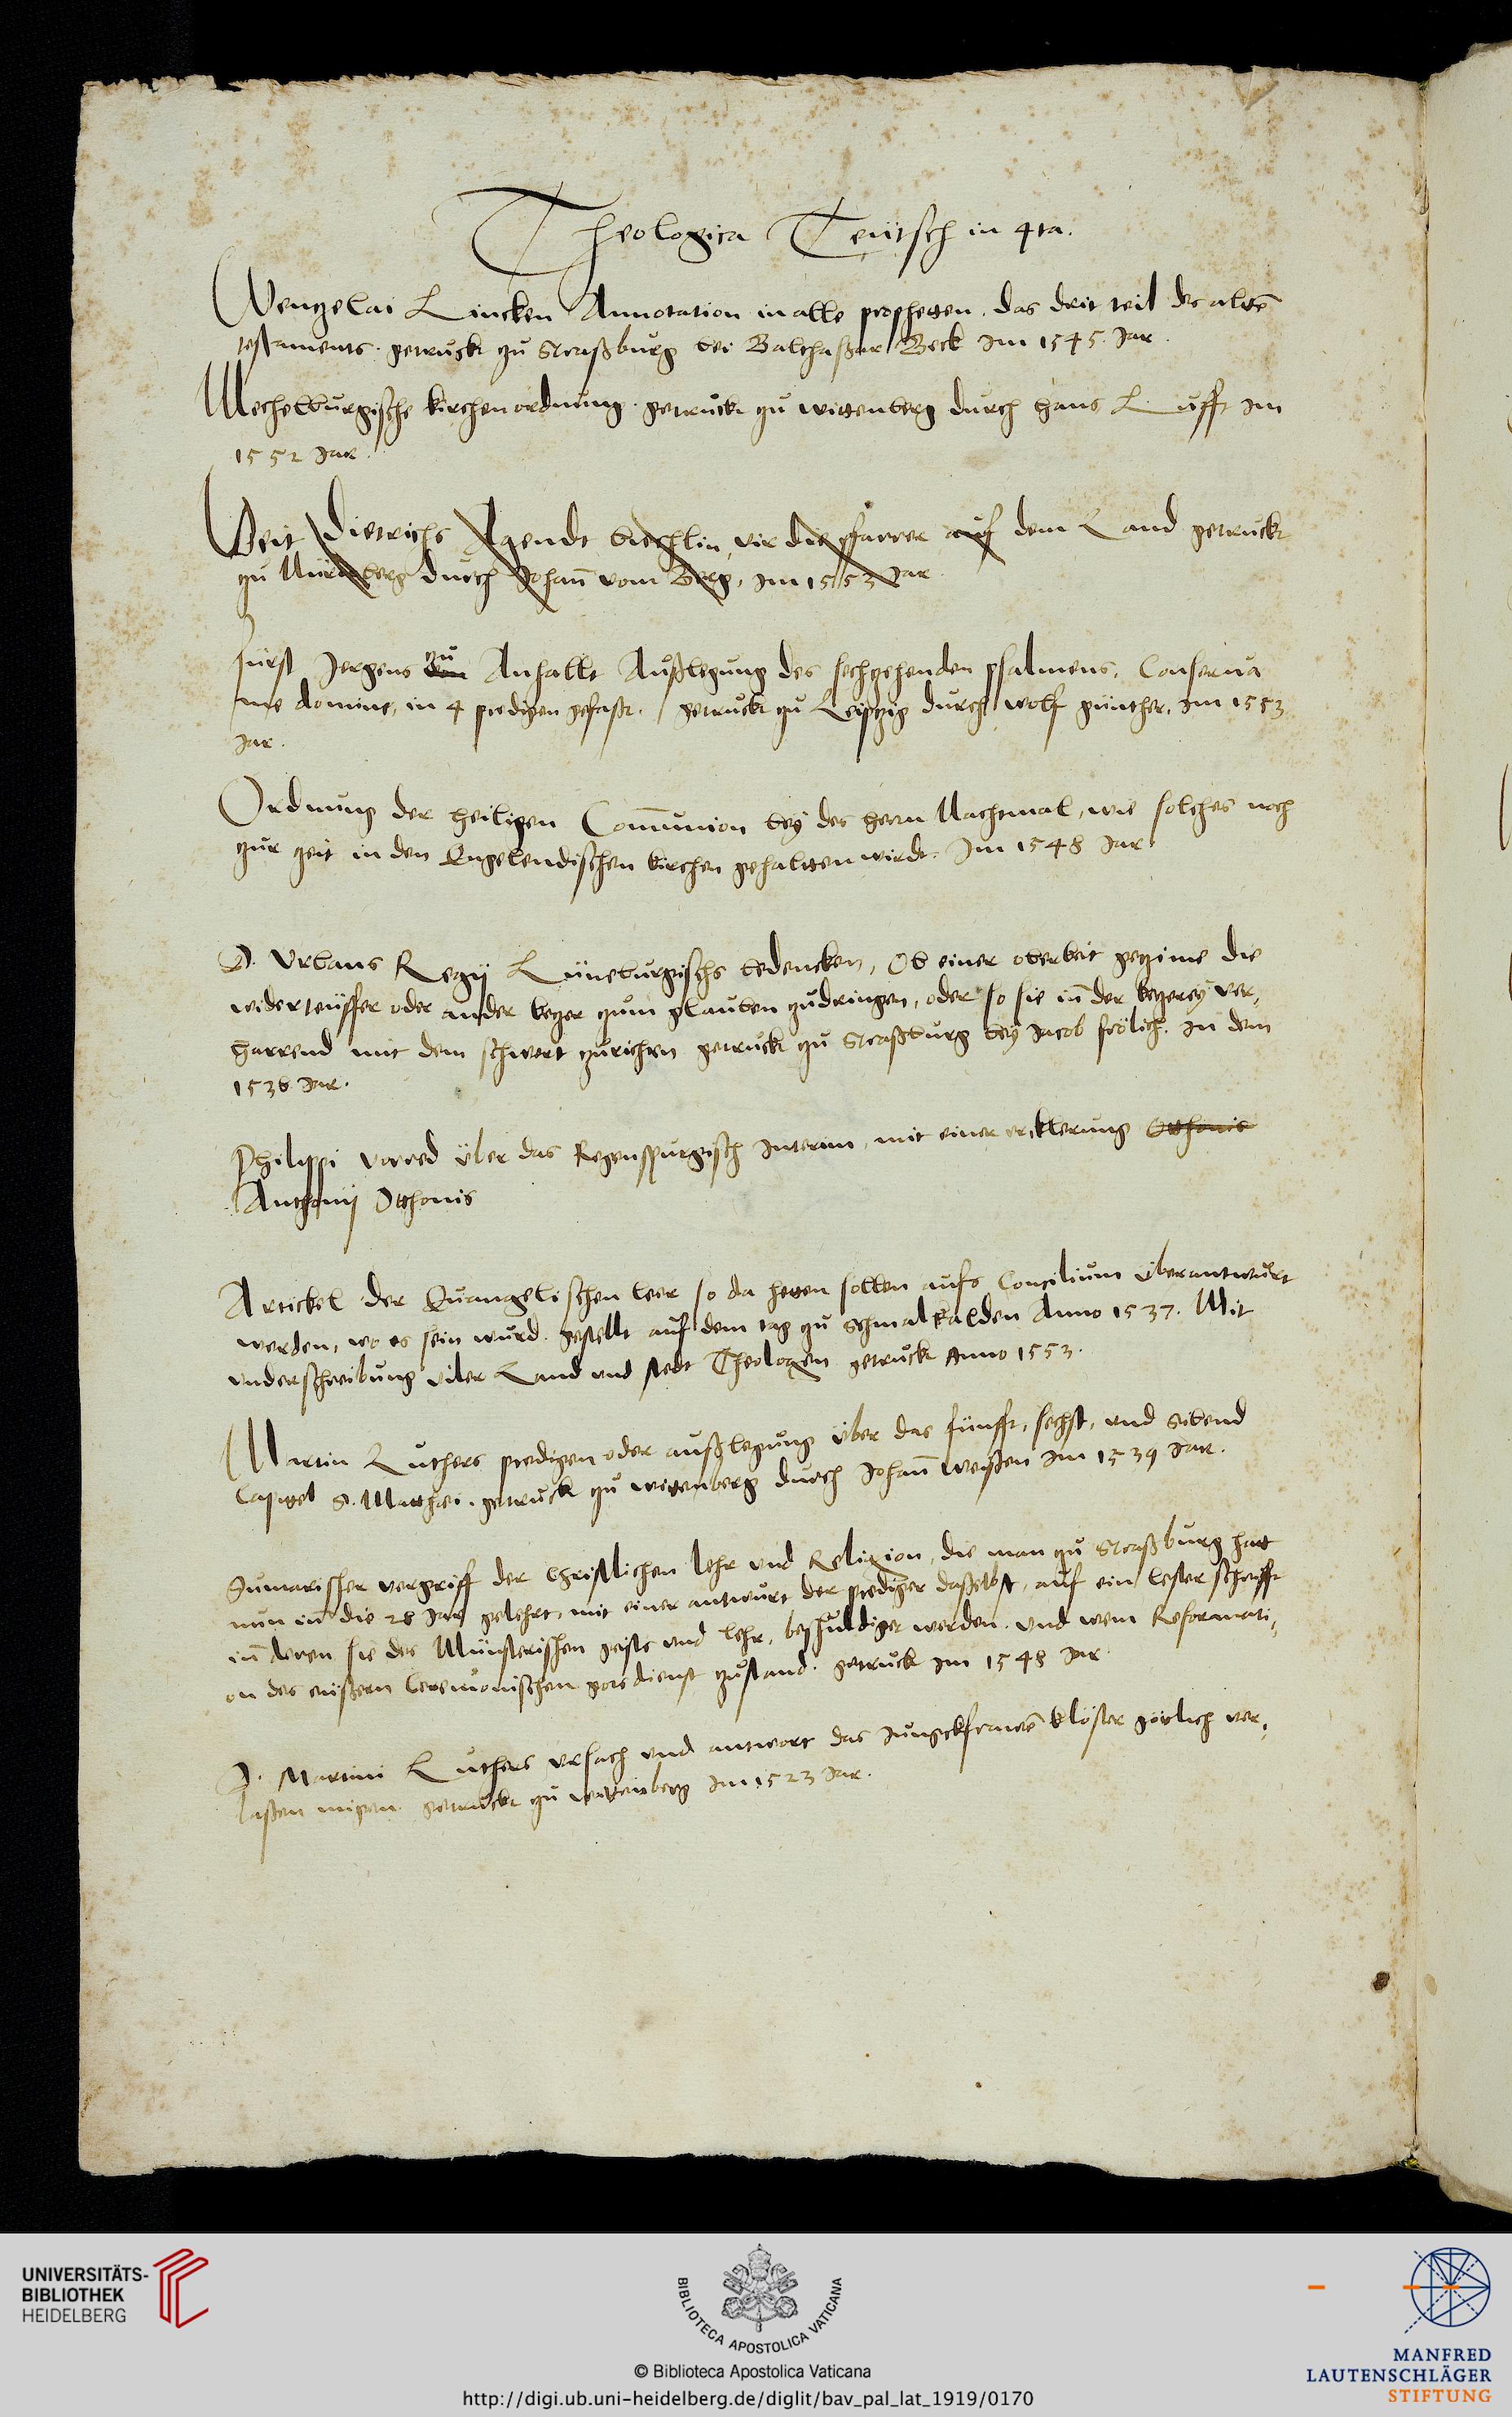 Theologica Teütsch in 4ta.
Wenzelai Lincken Annotation in alle propheten. das drit teil des alten̄
testaments. getruckt zu Straßburg bei Balthaßar Beck Im 1545. Jar.
Mechelburgische kirchenordnung. getruckt zu wittenberg durch Hans Lufft Im
1552 Jar.
Veit Dietrichs Agendt biechlin, vir die pfarrer auf dem Land getruckt
zu Nürnberg durch Johan̄ vom Berg, Im 1553 Jar.
zu
fürst Jergens von Anhallt Außlegung des sechzehenden psalmens, Conserva
me domine, in 4 predigen gefaßt. / getruckt zu Leiptzig durch Wolf günther. Im 1553
Jar.
Ordnung der heiligen Com̄union bey des herrn Nachtmal, wie solches noch
zur zeit in den Engelendischen kirchen gehalten wirdt. Im 1548 Jar.
D. Urbans Regij Lüneburgischs bedencken, Ob einer oberkeit gezime die
widerteüffer oder ander ketzer zum glauben zudringen, oder so sie in̄ der ketzerey ver,
harrend mit dem schwert zurichten getruckt zu Straßburg bey Jacob frölich. In dem
1538 Jar.
Philippi vorred über das Regenspurgisch Interim, mit einer erklerung Otthonis
Anthonij Otthonis
Artickel der Euangelischen leer so da hetten sollen aufs Concilium überantwurt
werden, wo es sein wurd. gestellt auf dem tag zu Schmalkalden Anno 1537. Mit
underschreibung viler Land und stedt Theologen getruckt Anno 1553.
Martin Luthers predigen oder außlegung über das fünfft, sechst, und sibend
Capitel S. Matthæi. getruckt zu wittenberg durch Johan̄ Weißen Im 1539 Jar.
Sumarischer vergriff der Christlichen lehr und Religion, die man zu Straßburg hatt
nun in die 28 Jar gelehrt, mit einer antwurt der prediger daßelbst, auf ein lester schrifft
in̄ deren sie des Münsterischen geists und lehr, beschuldiget werden. und wem Reformati,
on des eüßern Ceremonischen gotsdienst zustand. getruckt Im 1548 Jar.
D. Martini Luthers ursach und antwort das Jungckfrawen̄ klöster götlich ver,
laßen migen. getruckt zu wittenberg Im 1523 Jar.
UNIVERSITÄTS-
BIBLIOTHEK
HEIDELBERG
BIBLIOTECA APOSTOLICA VATICANA
© Biblioteca Apostolica Vaticana
http://digi.ub.uni-heidelberg.de/diglit/bav_pal_lat_1919/0170
MANFRED
LAUTENSCHLÄGER
STIFTUNG